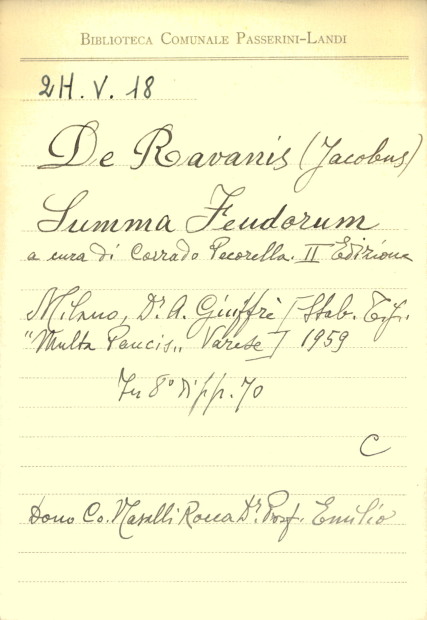 BIBLIOTECA COMUNALE PASSERINI-LANDI
2H. V. 18
De Ravanis (Jacobus)
Summa Feudorum
a cura di Corrado Pecorella. II Edizione
Milano, Dr. A. Giuffrè [Stab. Tip.
"Multa Paucis„ Varese] 1959
In 8° di pp. 70
C
Dono Co. Nasalli Rocca Dr. Prof. Emilio